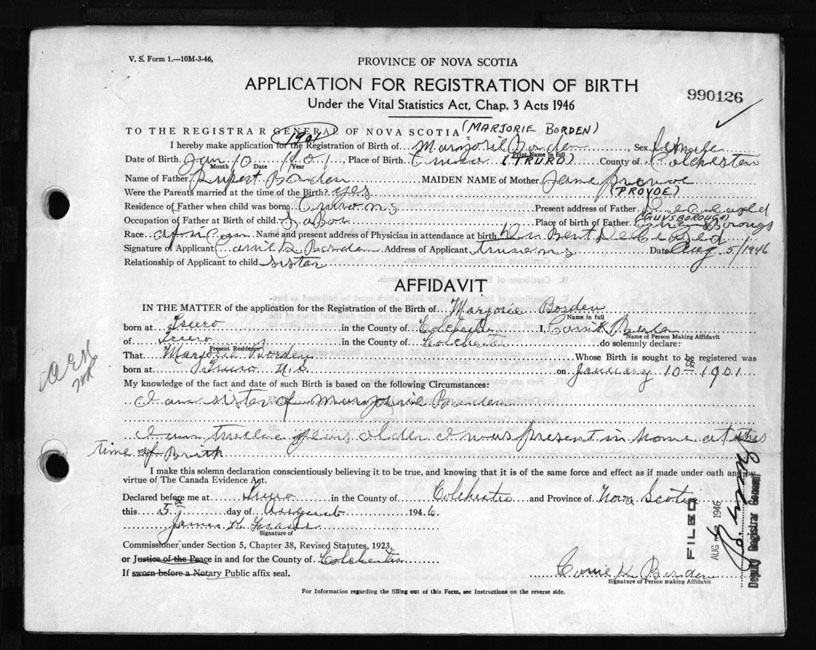 V. S. Form 1.—10M-3-46,
PROVINCE OF NOVA SCOTIA
APPLICATION FOR REGISTRATION OF BIRTH
990126
Under the Vital Statistics Act, Chap. 3 Acts 1946
TO THE REGISTRAR GENERAL OF NOVA SCOTIA (MARJORIE BORDEN)
1901
I hereby make application for the Registration of Birth of Marjorie Borden Sex female
Print Name in full
Date of Birth Jan 10 1901 Place of Birth (TRURO) County of Colchester
Month Date Year
Name of Father Rupert Borden MAIDEN NAME of Mother Jane
(PROVOE)
Were the Parents married at the time of the Birth? yes
Residence of Father when child was born Truro ns Present address of Father
(GUYSBOROUGH)
Occupation of Father at Birth of child Labor Place of birth of Father
Race African Name and present address of Physician in attendance at birth Dr
Signature of Applicant Borden Address of Applicant truro ns Date Aug 5/1946
Relationship of Applicant to child sister
AFFIDAVIT
IN THE MATTER of the application for the Registration of the Birth of Marjorie Borden
Name in full
born at Truro in the County of Colchester I, Borden
Name of Person Making Affidavit
of Truro in the County of Colchester do solemnly declare:
Present Residence
That Marjorie Borden Whose Birth is sought to be registered was
born at Truro N.S. on January 10th 1901
My knowledge of the fact and date of such Birth is based on the following Circumstances:
I am sister of Marjorie Borden
I am twelve years older I was present in home at this
time of Birth
I make this solemn declaration conscientiously believing it to be true, and knowing that it is of the same force and effect as if made under oath and by
virtue of The Canada Evidence Act.
Declared before me at Truro in the County of Colchester and Province of Nova Scotia
this 5th day of August 1946.
James
Signature of
Commissioner under Section 5, Chapter 38, Revised Statutes, 1923,
or Justice of the Peace in and for the County of Colchester
If sworn before a Notary Public affix seal.
Borden
Signature of Person making Affidavit
For Information regarding the filling out of this Form, see Instructions on the reverse side.
FILED
AUG 1946
Deputy Registrar General